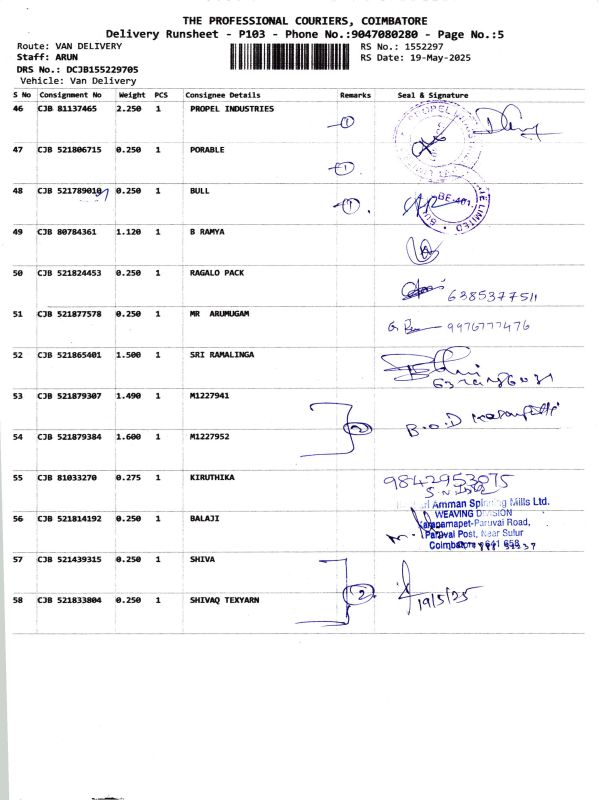 THE PROFESSIONAL COURIERS, COIMBATORE
Delivery Runsheet - P103 - Phone No.:9047080280 - Page No.:5
Route: VAN DELIVERY
RS No.: 1552297
Staff: ARUN
RS Date: 19-May-2025
DRS No.: DCJB155229705
Vehicle: Van Delivery
S No Consignment No Weight PCS Consignee Details Remarks Seal & Signature
46 CJB 81137465 2.250 1 PROPEL INDUSTRIES 1
47 CJB 521806715 0.250 1 PORABLE 1
48 CJB 521789010 0.250 1 BULL 1
49 CJB 80784361 1.120 1 B RAMYA
50 CJB 521824453 0.250 1 RAGALO PACK
51 CJB 521877578 0.250 1 MR ARUMUGAM 9976777476
52 CJB 521865401 1.500 1 SRI RAMALINGA
53 CJB 521879307 1.490 1 M1227941
B.O.D
54 CJB 521879384 1.600 1 M1227952 2
55 CJB 81033270 0.275 1 KIRUTHIKA 9842953075
Amman Spinning Mills Ltd.
56 CJB 521814192 0.250 1 BALAJI WEAVING DIVISION
Karanampet-Paruvai Road,
Paruvai Post, Near Sulur
Coimbatore - 641 658
57 CJB 521439315 0.250 1 SHIVA
58 CJB 521833804 0.250 1 SHIVAQ TEXYARN 2 19/5/25